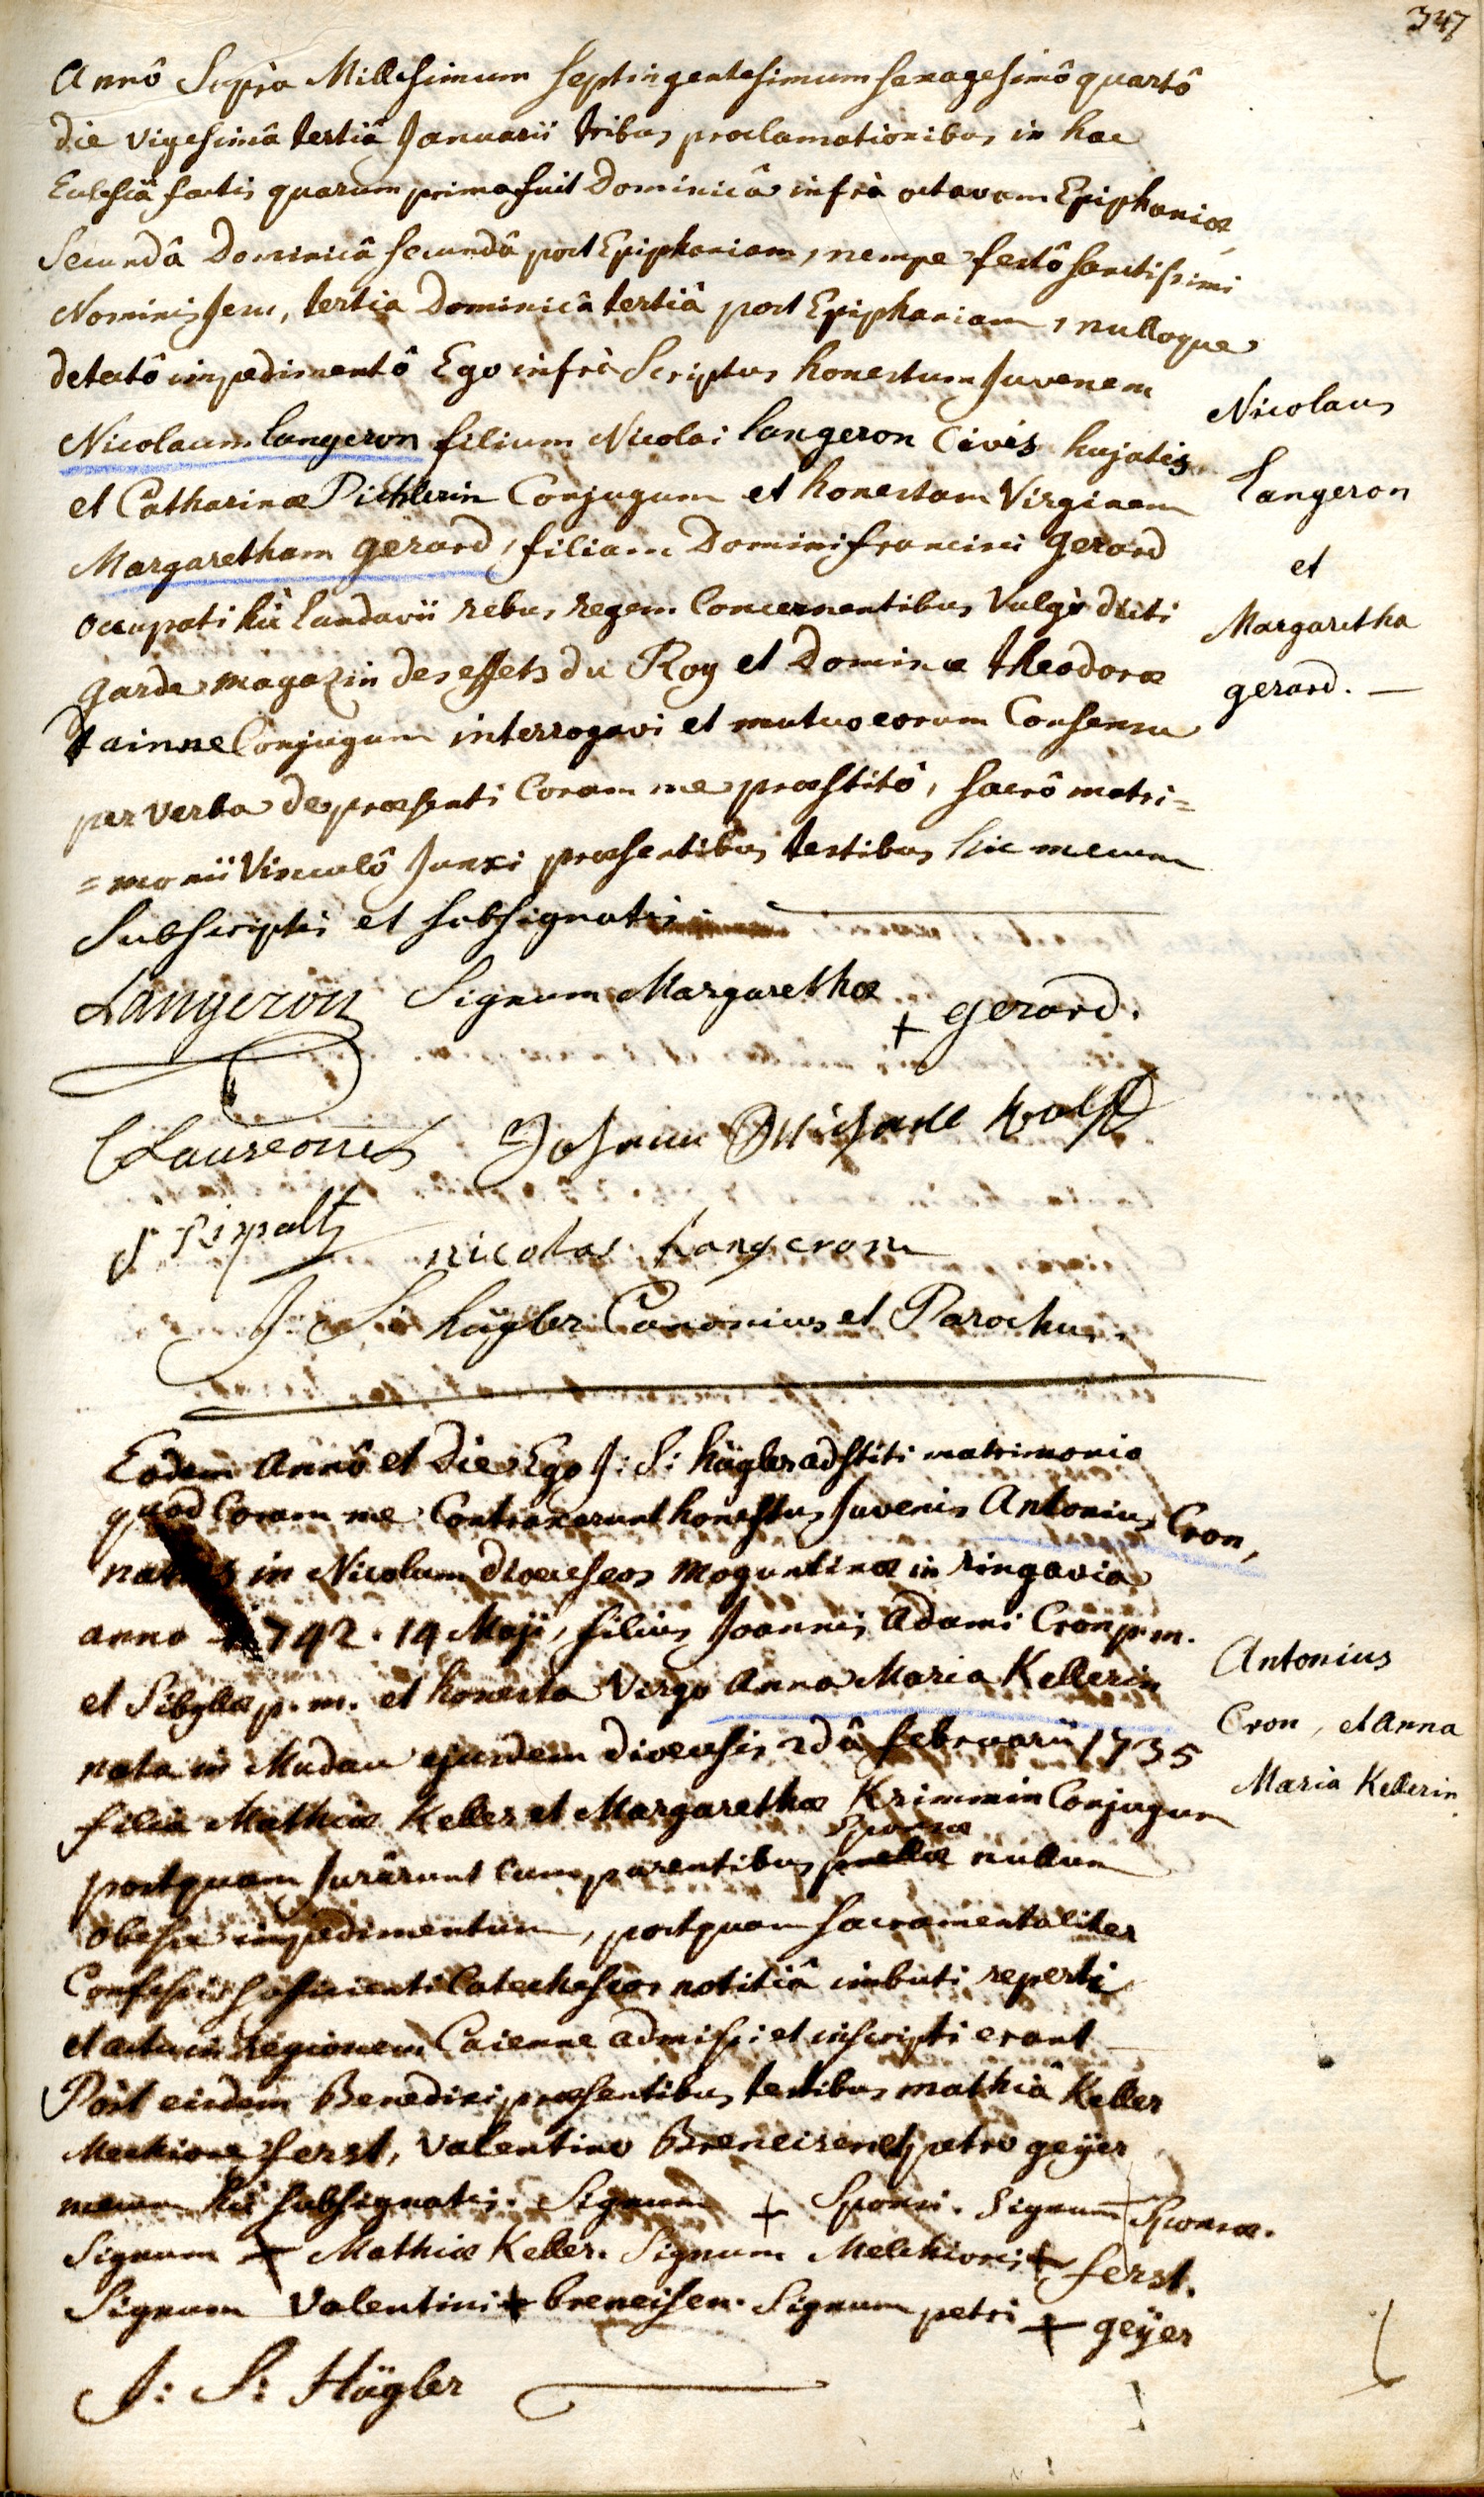 347
Annô Supra Millesimum septingentesimum sexagesimô quartô
die vigesimâ tertiâ Januarii tribus proclamationibus in hac
Ecclesiâ factis quarum prima fuit Dominicâ infrà octavam Epiphaniæ,
Secundâ Dominicâ secundâ post Epiphaniam, nempe festô sanctissimi
Nominis Jesu, tertia Dominicâ tertiâ post Epiphaniam, nulloque
detectô impedimentô Ego infrà Scriptus honestum Juvenem
Nicolaum Langeron filium Nicolai Langeron Civis hujatis
et Catharinæ Pichlerin Conjugum et honestam Virginem
Margaretham gerard, filiam Domini francisci gerard
occupati hic Landavii rebus regem Concernentibus Vulgò dicti
garde magazin des effets du Roy et Dominæ theodoræ
Conjugum interrogavi et mutuo eorum Consensu
per verba de præsenti Coram me præstitô, sacrô matri=
=monii Vinculô Junxi præsentibus testibus hic mecum
Subscriptis et subsignatis.
Nicolaus
Langeron
et
Margaretha
gerard. —
Langeron Signum Margarethæ + gerard.
Laureont Johann Michaell Wolff
S Ripalt nicolas Langeron
J. S. hügler Canonicus et Parochus.
Eodem Annô et Die Ego J: S: hügler adstiti matrimonio
quod Coram me Contraxerunt honestus Juvenis Antonius Cron,
natus in Nicolum dioeceseos moguntinæ in ringavia
anno 1742. 14 Maji, filius Joannis Adami Cron p.m.
et Sibyllæ p.m. et honesta Virgo Anna Maria Kellerin
nata in Mudau ejusdem dioecesis 2dâ februarii 1735
filia Mathiæ Keller et Margarethæ Krimmin Conjugum
Sponsæ
postquam Jurârunt cum parentibus puellæ nullum
obesse impedimentum, postquam sacramentaliter
Confessi sufficienti Catecheseos notitiâ imbuti reperti
et actu in regionem Caienne admissi et inscripti erant
Post eisdem Benedixi præsentibus testibus mathiâ Keller
Melchiore ferst, Valentino Breneisen et petro geÿer
mecum hic subsignatis. Signum + Sponsi. Signum + Sponsæ.
Signum + Mathiæ Keller. Signum Melchioris + ferst.
Signum Valentini + breneisen. Signum petri + geÿer
J: S: Hügler
Antonius
Cron, et Anna
Maria Kellerin.